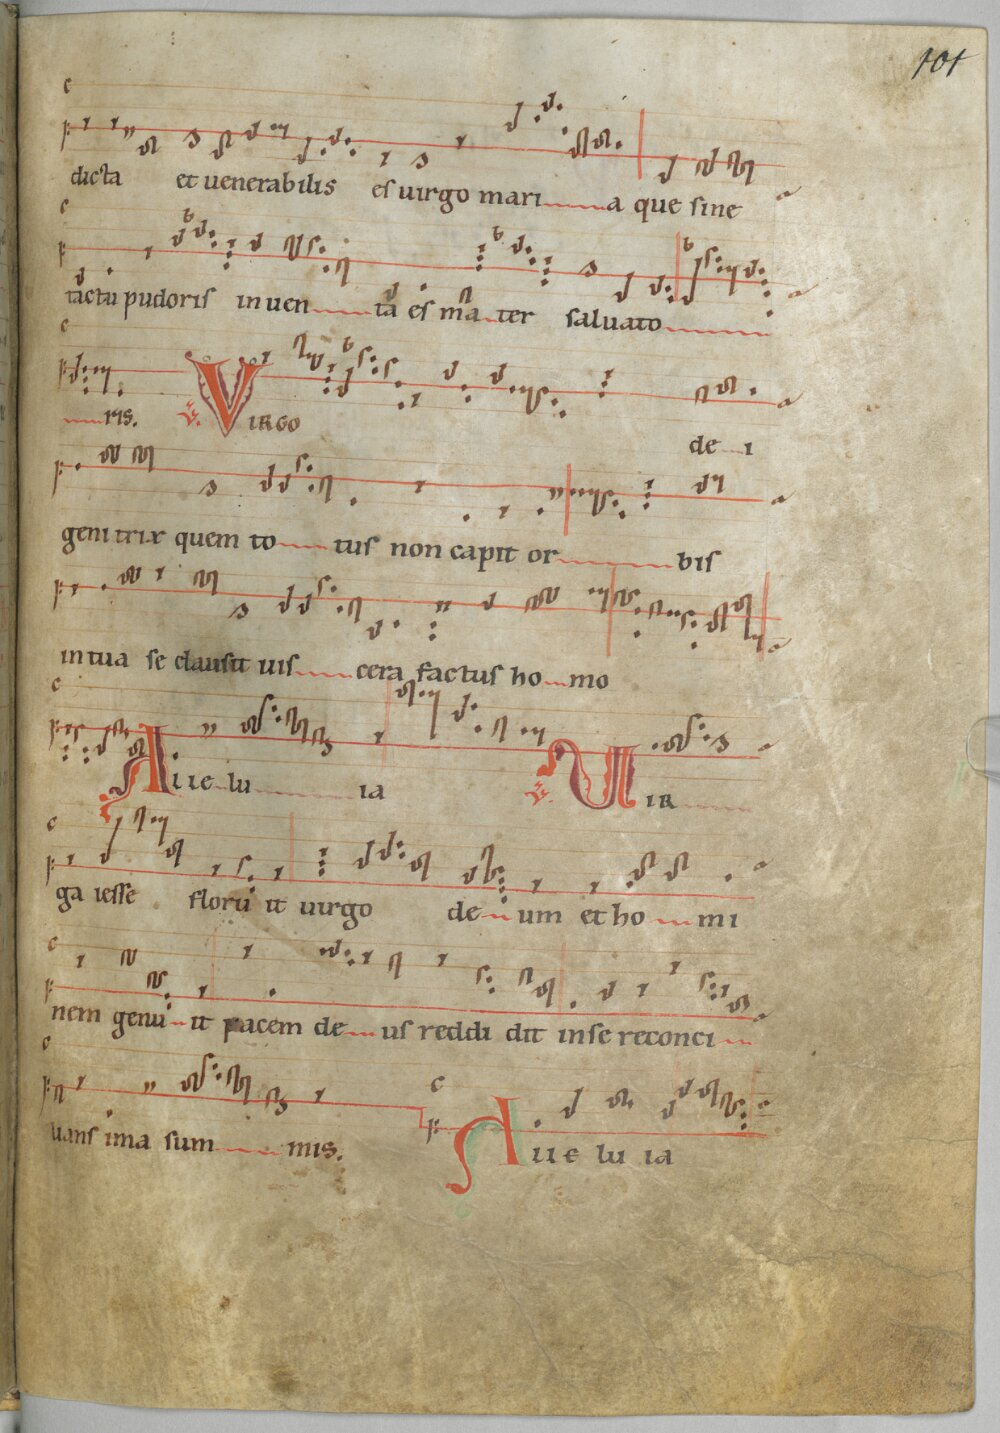 101
dicta et uenerabilis es uirgo mari a que sine
tactu pudoris inuen ta es ma ter saluato
ris. V. VIRGO de i
genitrix quem to tus non capit or bis
in tua se clausit uis cera factus ho mo
Aue lu ia V. VIR
ga iesse floru it uirgo de um et ho mi
nem genu it pacem de us reddi dit in se reconci
lians ima sum mis. A ue lu ia